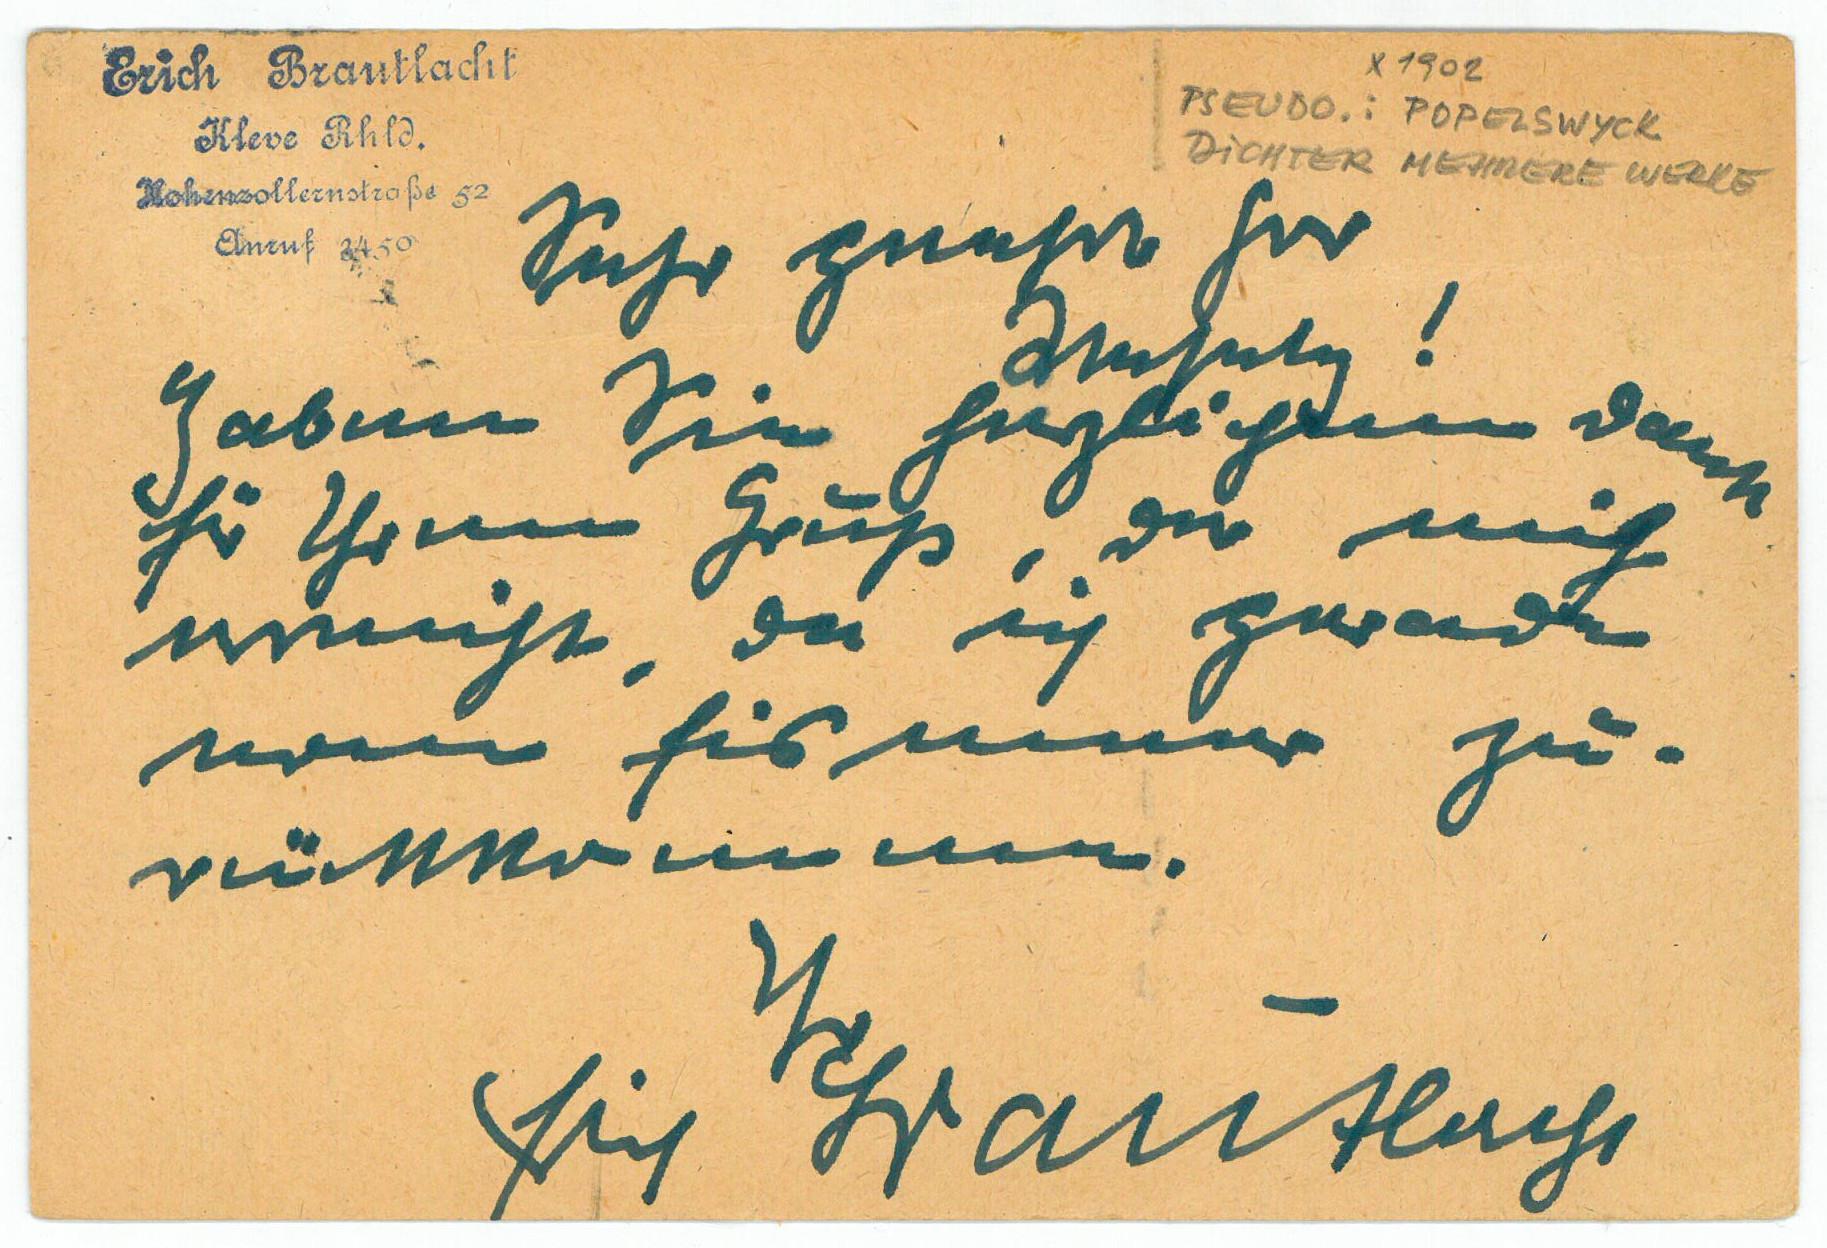 Erich Brautlacht
Kleve Rhld.
Hohenzollernstraße 52
Anruf
x 1902
PSEUDO.: POPELSWYCK
DICHTER MEHRERE WERKE
Sehr geehrter Herr
!
Haben Sie herzlichen Dank
für Ihren Gruß, der mich
erreicht, da ich gerade
vom Eismeer zu-
rückkomme.
Ihr
Erich Brautlacht